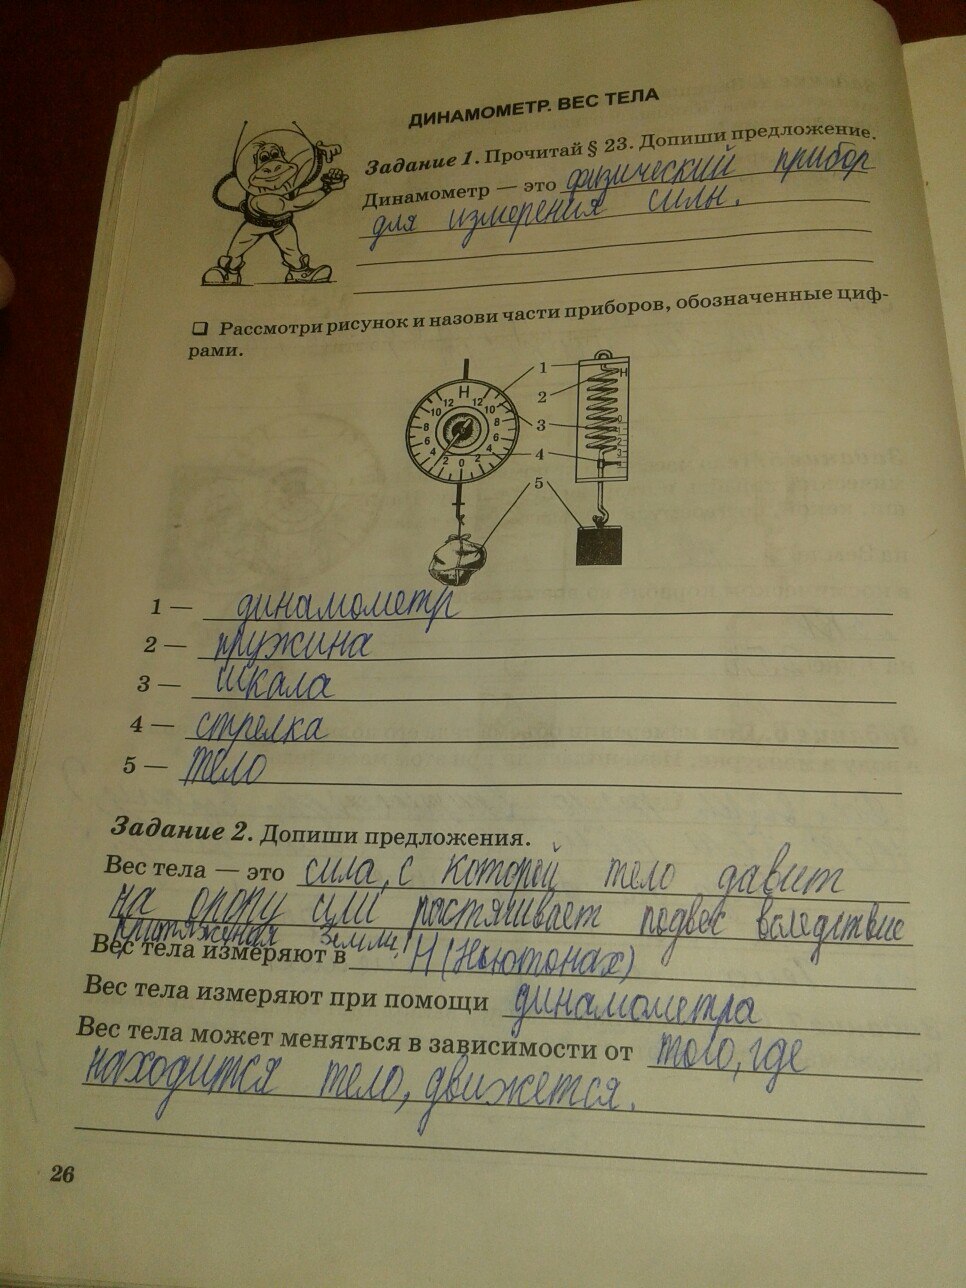 ДИНАМОМЕТР. ВЕС ТЕЛА
Задание 1. Прочитай § 23. Допиши предложение.
Динамометр — это физический прибор
для измерения силы.
❑ Рассмотри рисунок и назови части приборов, обозначенные циф-
рами.
Н
12 12
10 10
8 8
6 6
4 4
2 0 2
1
2
3
4
5
Н
0
1
2
3
1 — динамометр
2 — пружина
3 — шкала
4 — стрелка
5 — тело
Задание 2. Допиши предложения.
Вес тела — это сила, с которой тело давит
на опору или растягивает подвес вследствие
притяжения Земли.
Вес тела измеряют в Н (Ньютонах)
Вес тела измеряют при помощи динамометра
Вес тела может меняться в зависимости от того, где
находится тело, движется.
26